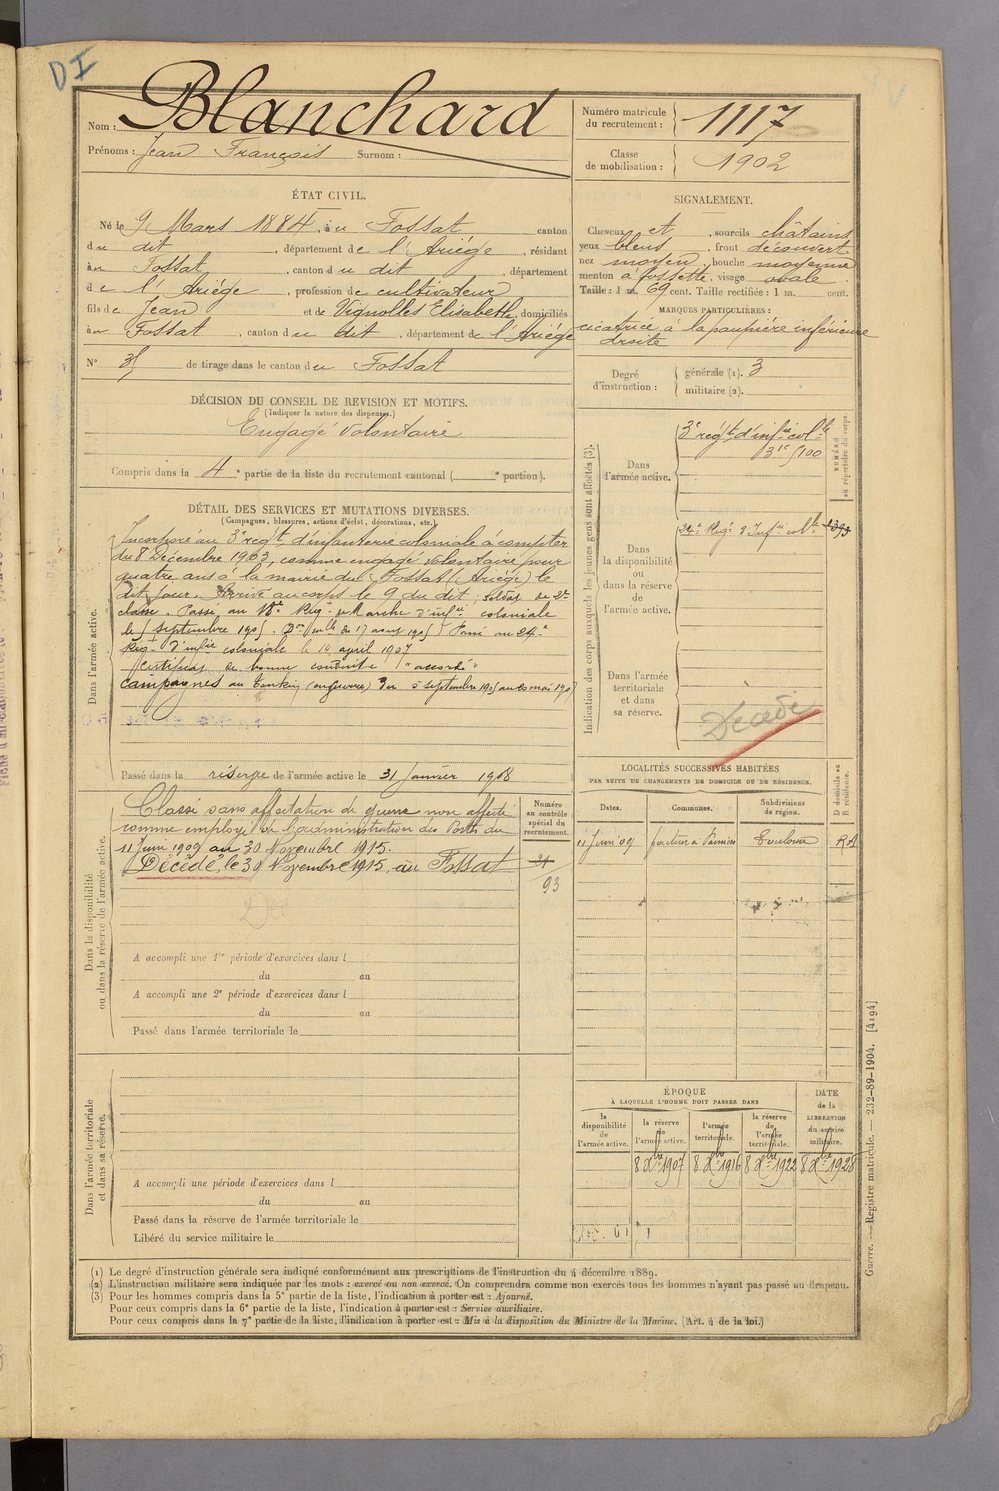 DI
Nom : Blanchard
Prénoms : Jean François Surnom :
Numéro matricule du recrutement : 1117
Classe de mobilisation : 1902
ÉTAT CIVIL.
Né le 9 Mars 1884, à u Fossat, canton
du dit, département de l'Ariége, résidant
à u Fossat, canton du dit, département
de l'Ariége, profession de cultivateur
fils de Jean et de Vignolles Elisabeth, domiciliés
à u Fossat, canton du dit, département de l'Ariége
N° 35 de tirage dans le canton du Fossat
SIGNALEMENT.
Cheveux et, sourcils châtains
yeux bleus, front découvert
nez moyen, bouche moyenne
menton à fossette, visage ovale
Taille : 1 m. 69 cent. Taille rectifiée : 1 m. cent.
MARQUES PARTICULIÈRES :
cicatrice à la paupière inférieure
droite
Degré d'instruction : générale (1). 3
militaire (2).
DÉCISION DU CONSEIL DE REVISION ET MOTIFS.
(Indiquer la nature des dispenses.)
Engagé Volontaire
Compris dans la 4e partie de la liste du recrutement cantonal ( e portion).
DÉTAIL DES SERVICES ET MUTATIONS DIVERSES.
(Campagnes, blessures, actions d'éclat, décorations, etc.)
Dans l'armée active.
Incorporé au 3e régt d'infanterie coloniale à compter
du 8 Décembre 1903, comme engagé volontaire pour
quatre ans à la mairie du Fossat (Ariége) le
dit jour. Arrivé au corps le 9 du dit; soldat de 2e
classe. Passé au 18e Régt de Marche d'infie coloniale
le 5 septembre 1905. Don du 17 août 1905 Passé au 24e
Régt d'infie coloniale le 14 avril 1907
Certificat de bonne conduite "accordé"
Campagnes au Tonkin (en guerre) du 5 septembre 1905 au mai 1907
Passé dans la réserve de l'armée active le 31 Janvier 1908
Indication des corps auxquels les jeunes gens sont affectés (3).
NUMÉRO au répertoire du corps
Dans l'armée active.
3e régt d'infie colle
Dans la disponibilité ou dans la réserve de l'armée active.
24e Régt d'Infie colle
Dans l'armée territoriale et dans sa réserve.
Décédé
Dans la disponibilité ou dans la réserve de l'armée active.
Classé sans affectation de guerre non affecté
comme employé de l'administration des Postes du
11 Juin 1909 au 30 Novembre 1915.
Décédé, le 30 Novembre 1915, au Fossat
Numéro au contrôle spécial du recrutement.
93
A accompli une 1re période d'exercices dans l
du au
A accompli une 2e période d'exercices dans l
du au
Passé dans l'armée territoriale le
LOCALITÉS SUCCESSIVES HABITÉES
PAR SUITE DE CHANGEMENTS DE DOMICILE OU DE RÉSIDENCE.
Dates. Communes. Subdivisions de région. D domicile ou R résidence.
11 Juin 09 facteur à Pamiers Toulouse RA
Dans l'armée territoriale et dans sa réserve.
A accompli une période d'exercices dans l
du au
Passé dans la réserve de l'armée territoriale le
Libéré du service militaire le
ÉPOQUE
À LAQUELLE L'HOMME DOIT PASSER DANS
la disponibilité de l'armée active. la réserve de l'armée active. l'armée territoriale. la réserve de l'armée territoriale.
DATE de la LIBÉRATION du service militaire.
8 Xbre 1907 8 Xbre 1916 8 Xbre 1922 8 Xbre 1928
Guerre. — Registre matricule. — 232-89-1904. [4194]
(1) Le degré d'instruction générale sera indiqué conformément aux prescriptions de l'instruction du 4 décembre 1889.
(2) L'instruction militaire sera indiquée par les mots : exercé ou non exercé. On comprendra comme non exercés tous les hommes n'ayant pas passé au drapeau.
(3) Pour les hommes compris dans la 5e partie de la liste, l'indication à porter est : Ajourné.
Pour ceux compris dans la 6e partie de la liste, l'indication à porter est : Service auxiliaire.
Pour ceux compris dans la 7e partie de la liste, l'indication à porter est : Mis à la disposition du Ministre de la Marine. (Art. 4 de la loi.)